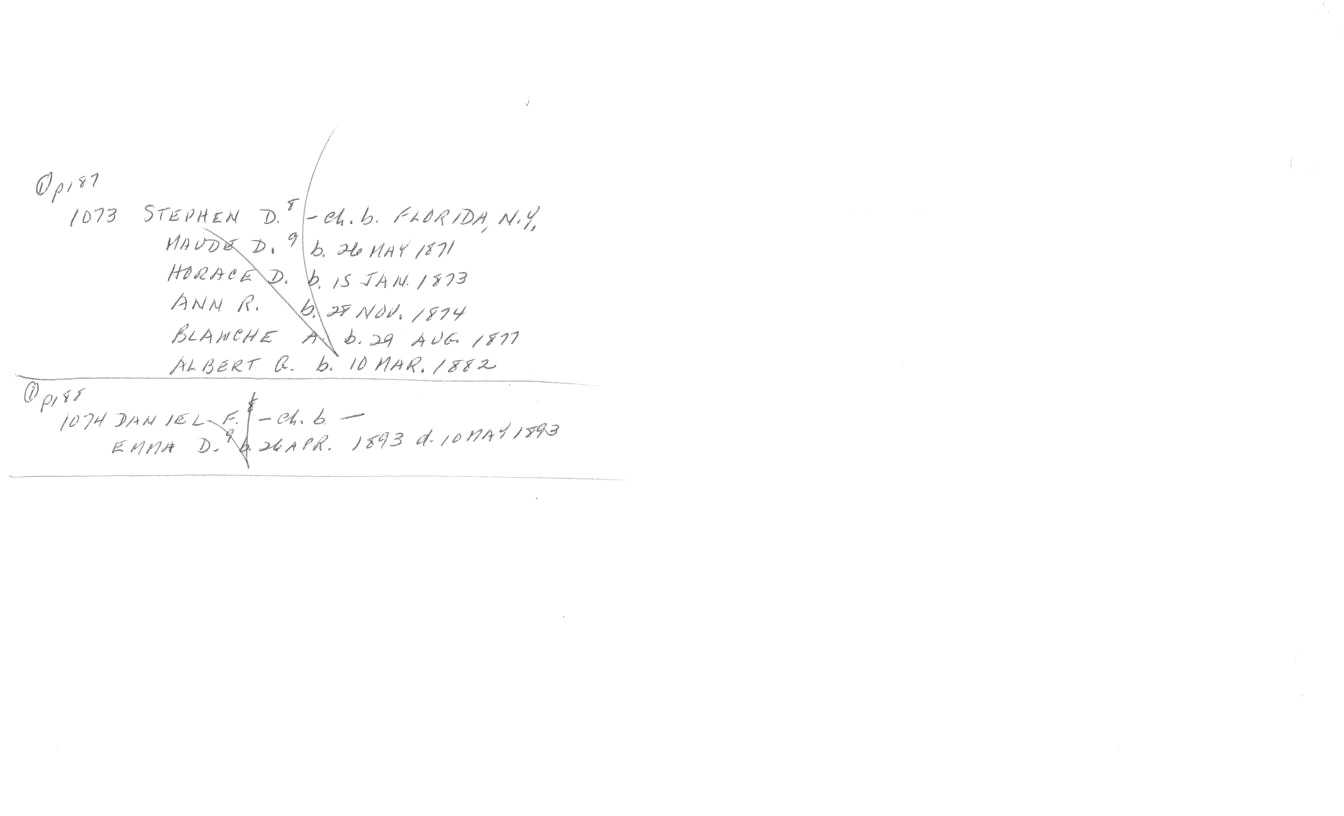 ① p187
1073 STEPHEN D.⁸ - ch. b. FLORIDA, N.Y.
MAUDE D.⁹ b. 26 MAY 1871
HORACE D. b. 15 JAN. 1873
ANN R. b. 28 NOV. 1874
BLANCHE A. b. 29 AUG. 1877
ALBERT G. b. 10 MAR. 1882
① p188
1074 DANIEL F.⁸ - ch. b —
EMMA D.⁹ b. 26 APR. 1893 d. 10 MAY 1893